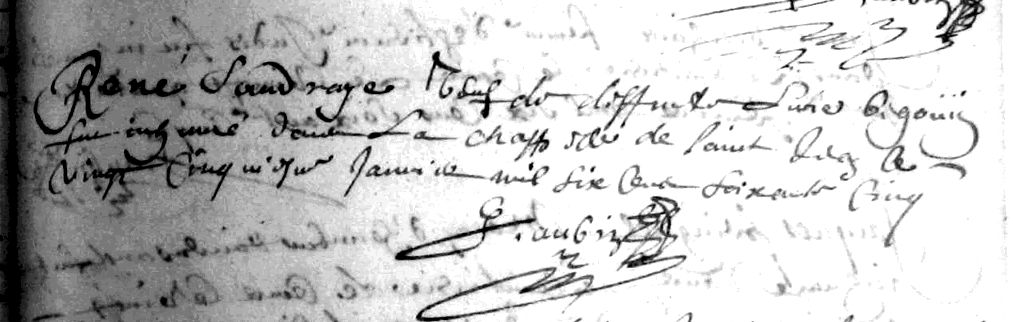 René Landraye Veuf de deffuncte Lucie Begouin
fut inhumé dans La chappelle de Saint le
vingt Cinquiesme Janvier mil six Cens Soixante Cinq
G. aubin